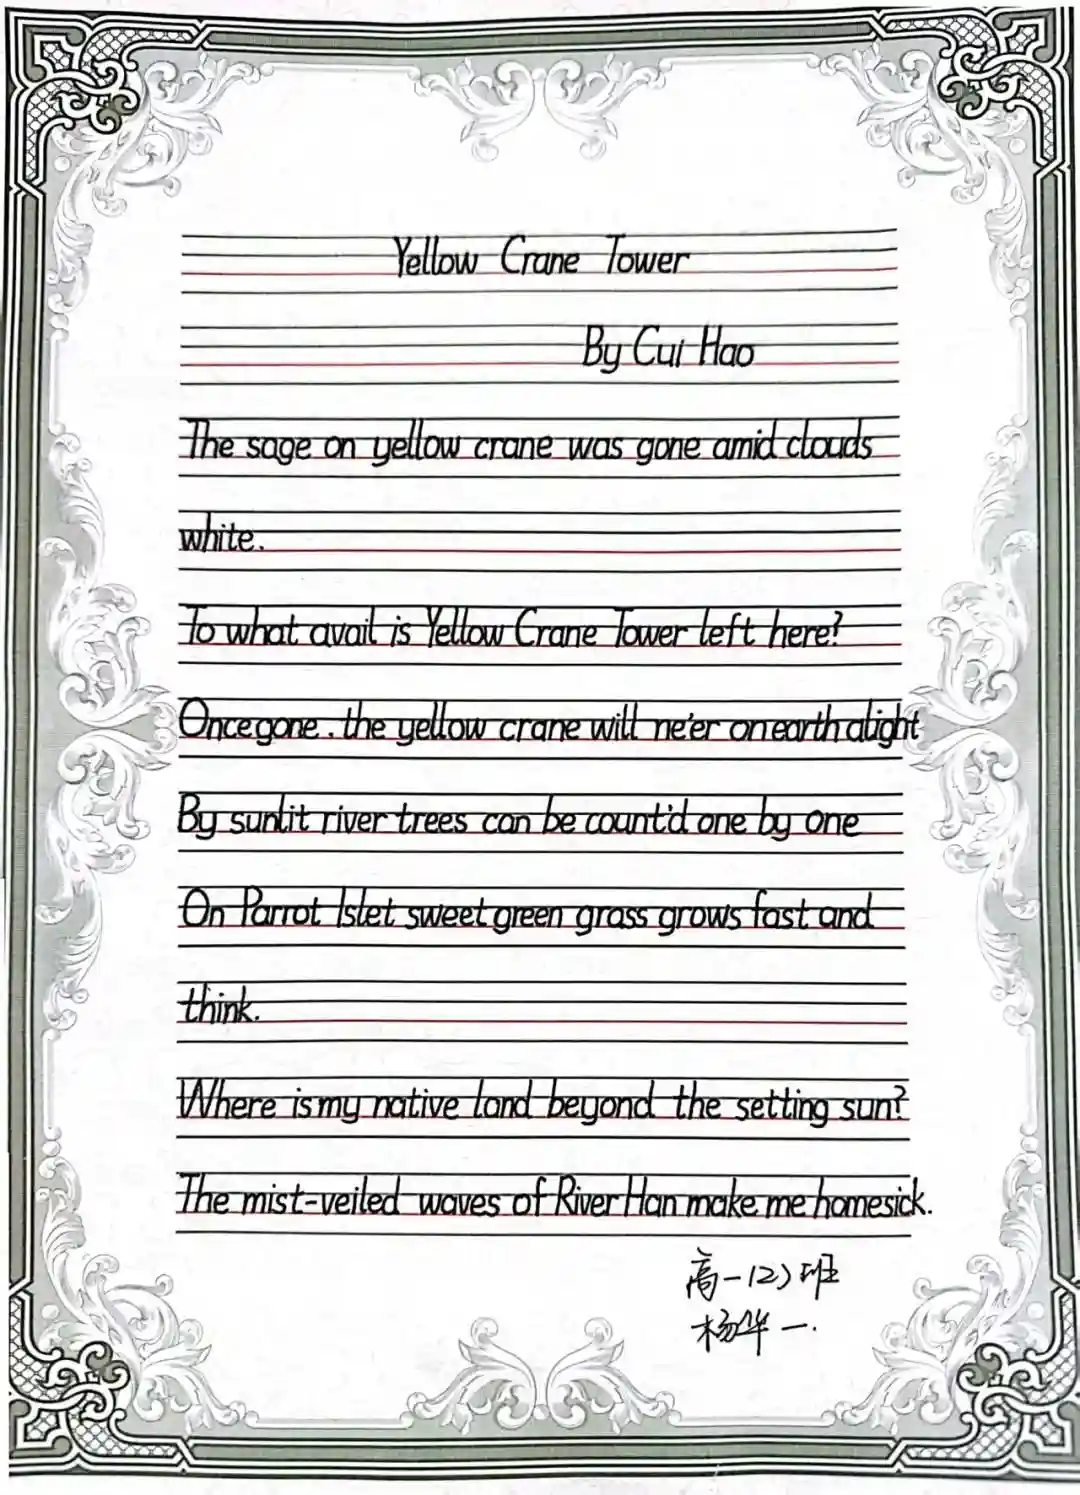 Yellow Crane Tower
By Cui Hao
The sage on yellow crane was gone amid clouds
white.
To what avail is Yellow Crane Tower left here?
Once gone. the yellow crane will ne'er on earth alight
By sunlit river trees can be count'd one by one
On Parrot Islet sweet green grass grows fast and
think.
Where is my native land beyond the setting sun?
The mist-veiled waves of River Han make me homesick.
高一(2)班
杨华一.